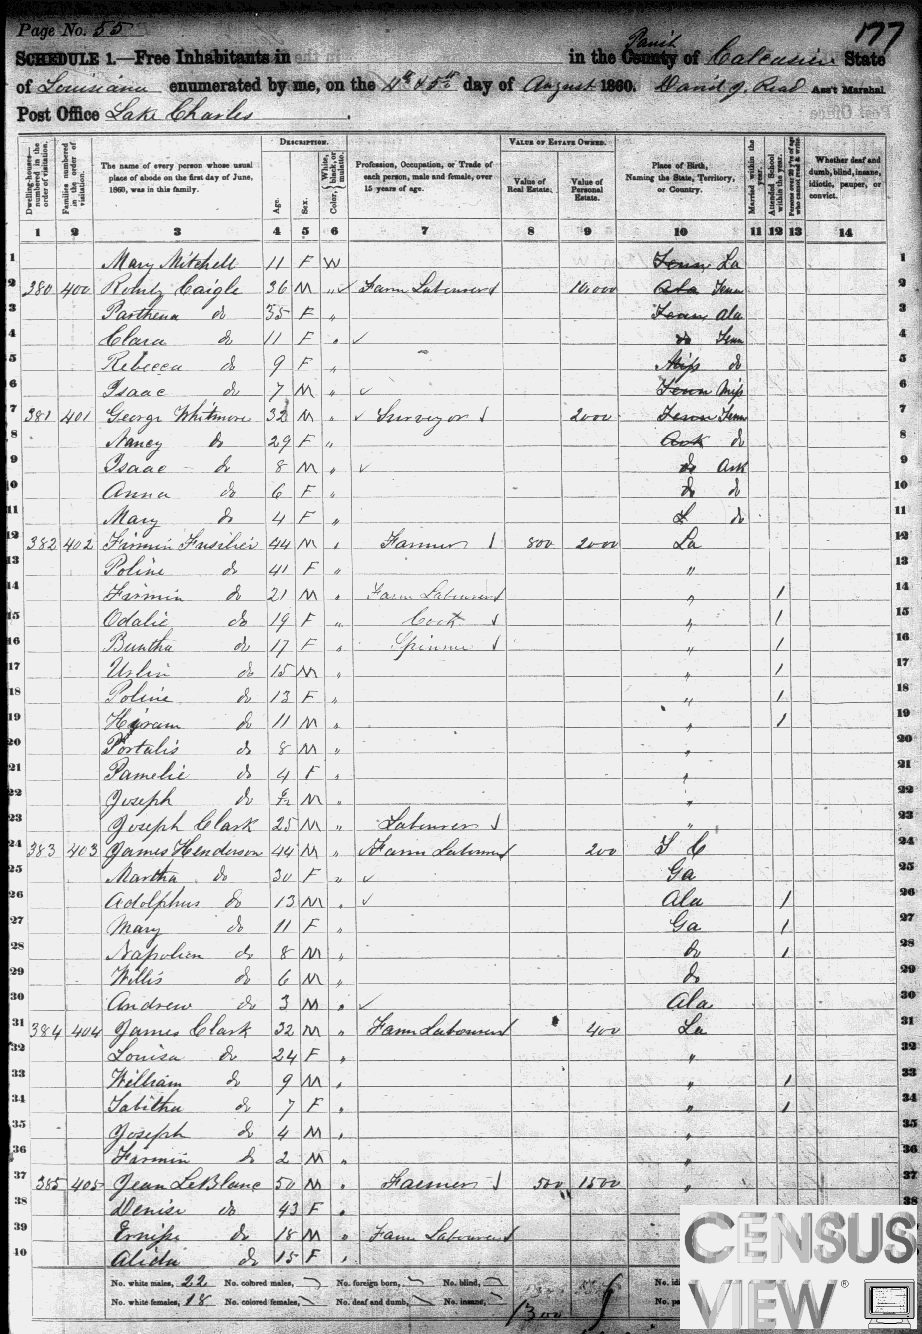 Page No. 55
177
SCHEDULE 1.—Free Inhabitants in in the County Parish of Calcasieu State
of Louisiana enumerated by me, on the day of August 1860. David J. Read Ass't Marshal.
Post Office Lake Charles
Dwelling-houses—numbered in the order of visitation.
Families numbered in the order of visitation.
The name of every person whose usual place of abode on the first day of June, 1860, was in this family.
DESCRIPTION.
Age.
Sex.
Color, White, black, or mulatto.
Profession, Occupation, or Trade of each person, male and female, over 15 years of age.
VALUE OF ESTATE OWNED.
Value of Real Estate.
Value of Personal Estate.
Place of Birth, Naming the State, Territory, or Country.
Married within the year.
Attended School within the year.
Persons over 20 y'rs of age who cannot read & write.
Whether deaf and dumb, blind, insane, idiotic, pauper, or convict.
1 2 3 4 5 6 7 8 9 10 11 12 13 14
1 Mary Mitchell 11 F W Tenn La 1
2 380 400 Caigle 36 M " Farm Labourer 10,000 Ala Tenn 2
3 Parthena do 35 F " Tenn Ala 3
4 Clara do 11 F " do Tenn 4
5 Rebecca do 9 F " Mip do 5
6 Isaac do 7 M " Tenn Mip 6
7 381 401 George Whitmore 32 M " Surveyor 2000 Tenn Tenn 7
8 Nancy do 29 F " Ark do 8
9 Isaac do 8 M " do Ark 9
10 Anna do 6 F " do do 10
11 Mary do 4 F " do 11
12 382 402 Firmin Fusilier 44 M " Farmer 800 2000 La 12
13 Poline do 41 F " " 13
14 Firmin do 21 M " Farm Labourer " / 14
15 Odalie do 19 F " Cook " / 15
16 do 17 F " Spinner " / 16
17 Urlin do 15 M " " / 17
18 Poline do 13 F " " / 18
19 Hyram do 11 M " " / 19
20 Portalis do 8 M " " 20
21 Pamelie do 4 F " " 21
22 Joseph do M " " 22
23 Joseph Clark 25 M " Labourer " 23
24 383 403 James Henderson 44 M " Farm Labourer 200 S C 24
25 Martha do 30 F " Ga 25
26 Adolphus do 13 M " Ala / 26
27 Mary do 11 F " Ga / 27
28 Napolien do 8 M " do / 28
29 Willis do 6 M " do 29
30 Andrew do 3 M " Ala 30
31 384 404 James Clark 32 M " Farm Labourer 400 La 31
32 Louisa do 24 F " " 32
33 William do 9 M " " / 33
34 Tabitha do 7 F " " / 34
35 Joseph do 4 M " " 35
36 Firmin do 2 M " " 36
37 385 405 Jean LeBlanc 50 M " Farmer 500 1500 " 37
38 Denise do 43 F " 38
39 do 18 M " Farm Labourer
40 Alida do 15 F "
No. white males, 22 No. colored males, No. foreign born, No. blind,
No. white females, 18 No. colored females, No. deaf and dumb, No. insane,
1300
CENSUS
VIEW®